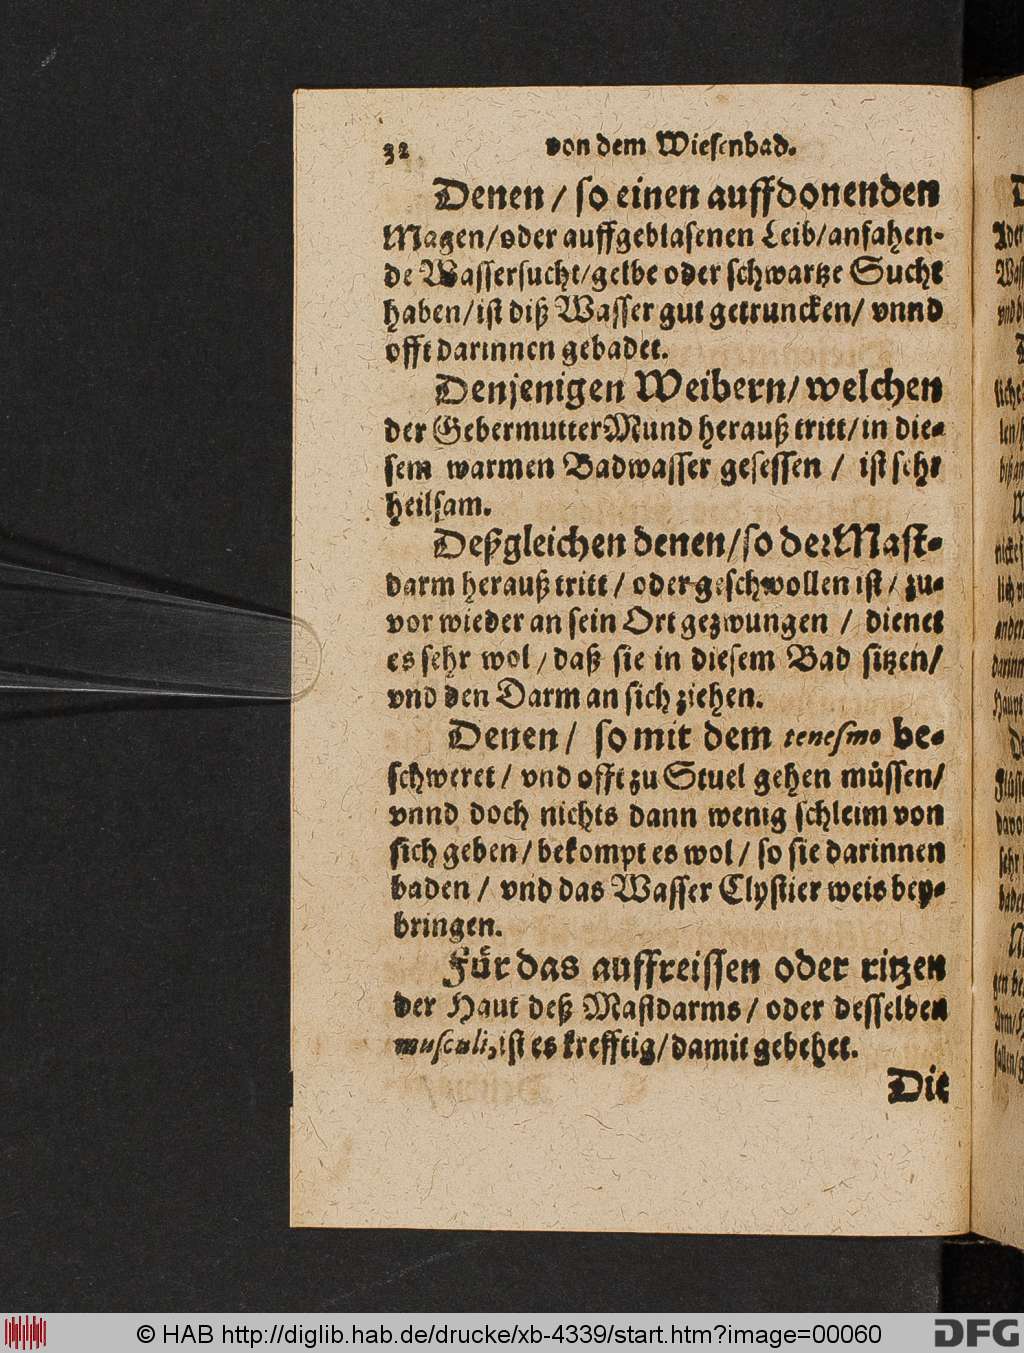 32 von dem Wiesenbad.
Denen / so einen auffdonenden
Magen/oder auffgeblasenen Leib/anfahen-
de Wassersucht/gelbe oder schwartze Sucht
haben/ist diß Wasser gut getruncken/ vnnd
offt darinnen gebadet.
Denjenigen Weibern/welchen
der GebermutterMund herauß tritt/in die-
sem warmen Badwasser gesessen / ist sehr
heilsam.
Deßgleichen denen/so der Mast-
darm herauß tritt / oder geschwollen ist / zu-
vor wieder an sein Ort gezwungen / dienet
es sehr wol / daß sie in diesem Bad sitzen/
vnd den Darm an sich ziehen.
Denen / so mit dem tenesmo be-
schweret / vnd offt zu Stuel gehen müssen/
vnnd doch nichts dann wenig schleim von
sich geben / bekompt es wol / so sie darinnen
baden / vnd das Wasser Clystier weis bey-
bringen.
Für das auffreissen oder ritzen
der Haut deß Mastdarms / oder desselben
musculi, ist es krefftig/damit gebehet.
Die
© HAB http://diglib.hab.de/drucke/xb-4339/start.htm?image=00060
DFG